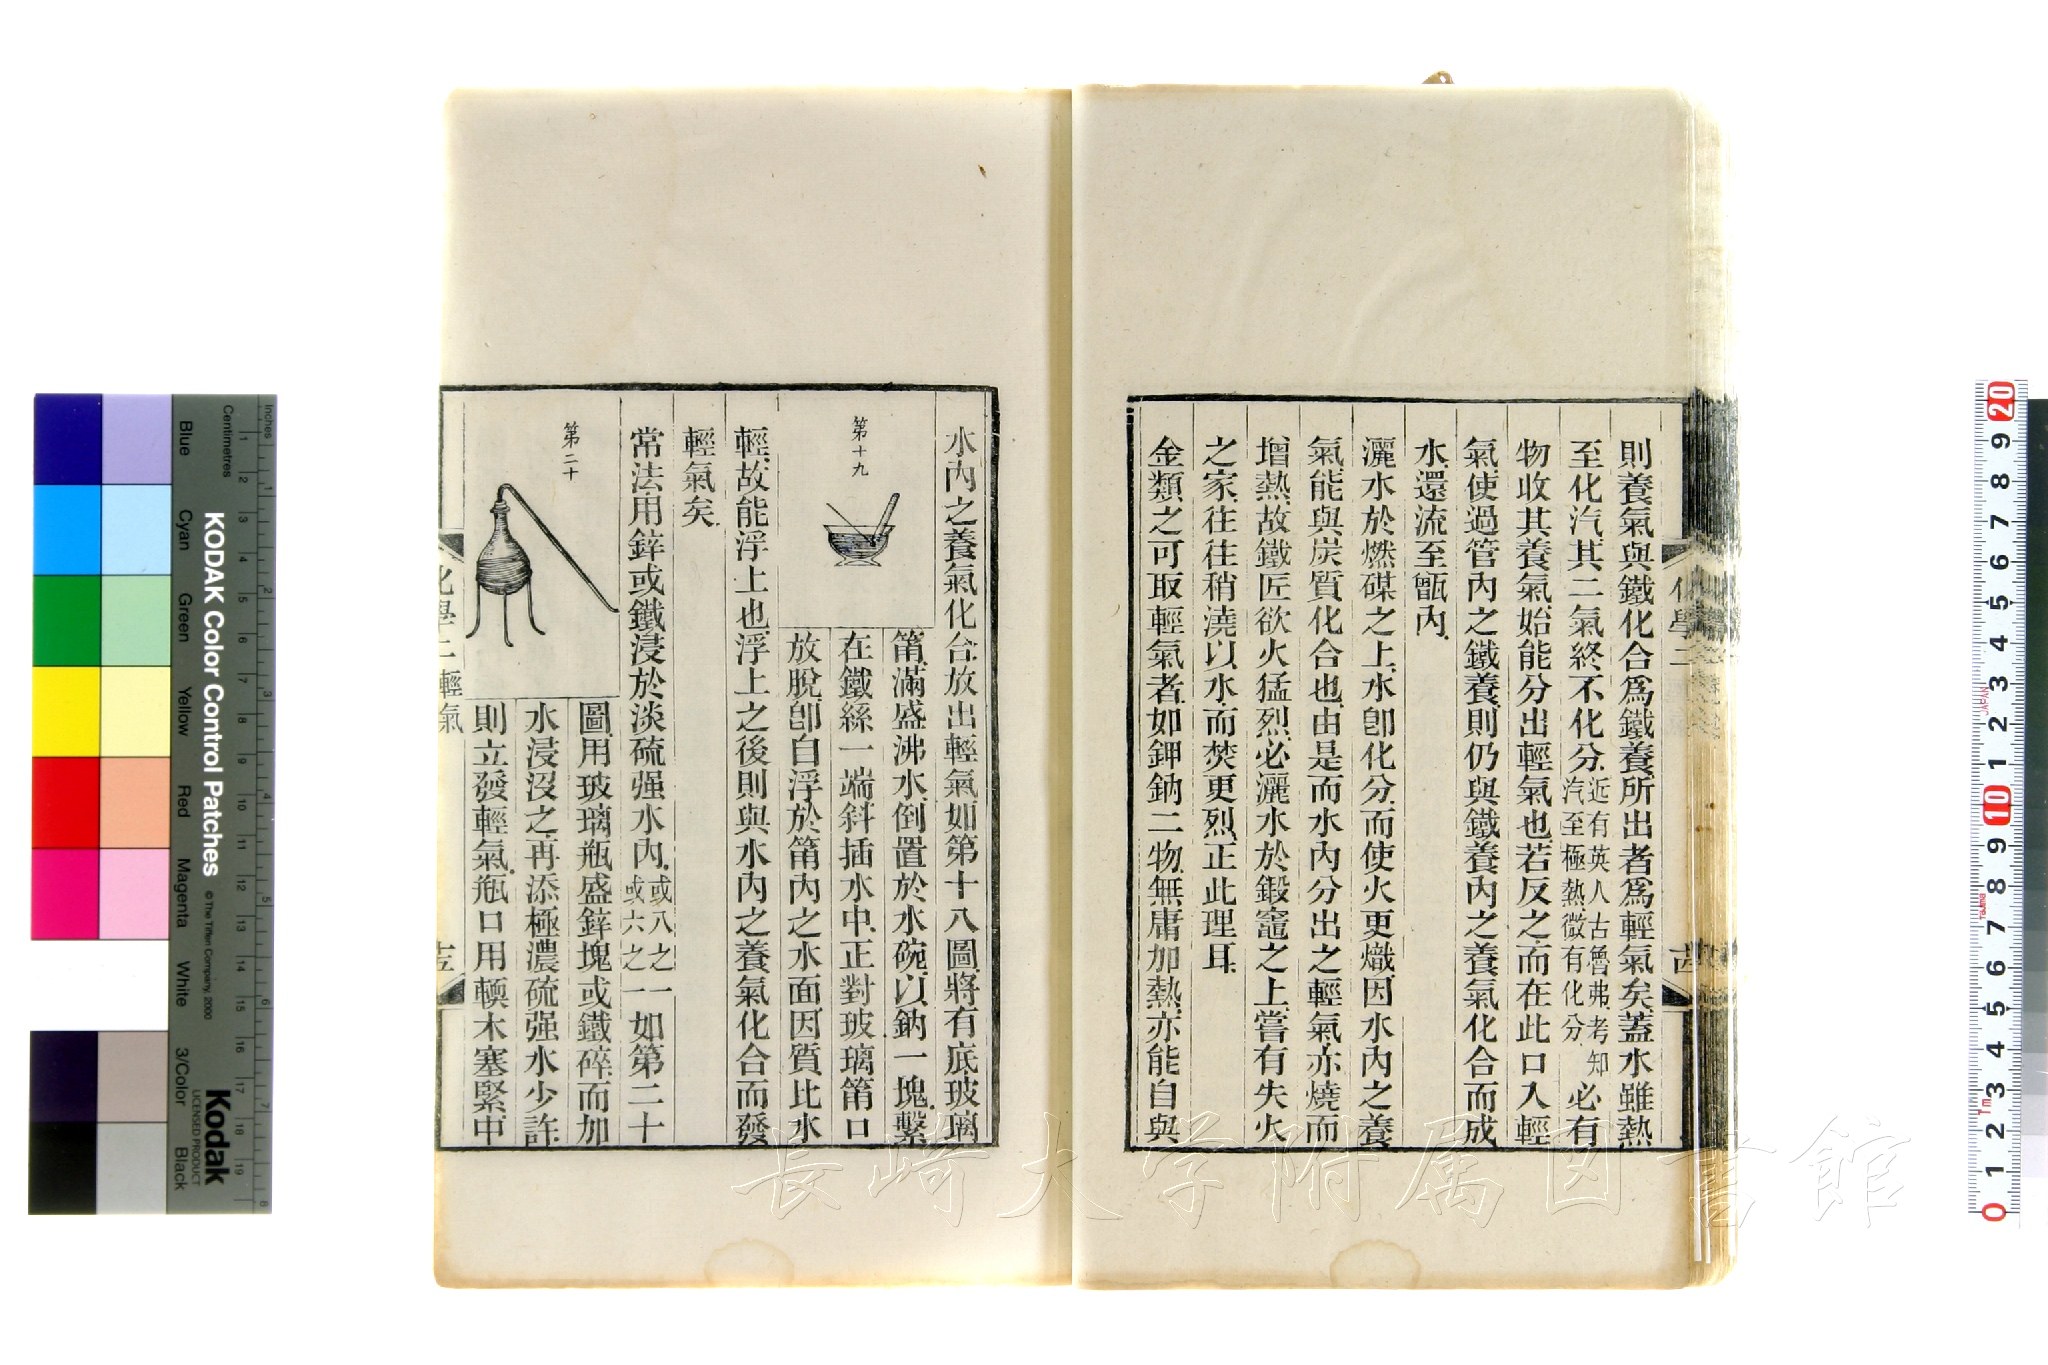 則養氣與鐵化合爲鐵養所出者爲輕氣矣蓋水雖熱
至化汽其二氣終不化分近有英人古魯弗考知汽至極熱微有化分必有
物收其養氣始能分出輕氣也若反之而在此口入輕
氣使過管內之鐵養則仍與鐵養內之養氣化合而成
水還流至甑內
灑水於燃煤之上水卽化分而使火更熾因水內之養
氣能與炭質化合也由是而水內分出之輕氣亦燒而
增熱故鐵匠欲火猛烈必灑水於鍛竈之上嘗有失火
之家往往稍澆以水而焚更烈正此理耳
金類之可取輕氣者如鉀鈉二物無庸加熱亦能自與
化學二
水內之養氣化合放出輕氣如第十八圖將有底玻璃
筩滿盛沸水倒置於水碗以鈉一塊繫
在鐵絲一端斜插水中正對玻璃筩口
放脫卽自浮於筩內之水面因質比水
第十九
輕故能浮上也浮上之後則與水內之養氣化合而發
輕氣矣
常法用鋅或鐵浸於淡硫强水內或八之一或六之一如第二十
圖用玻璃瓶盛鋅塊或鐵碎而加
水浸沒之再添極濃硫强水少許
則立發輕氣瓶口用輭木塞緊中
第二十
化學二輕氣
長崎大学附属図書館
KODAK Color Control Patches
© The Tiffen Company, 2000
Kodak
LICENSED PRODUCT
Inches
Centimetres
Blue
Cyan
Green
Yellow
Red
Magenta
White
3/Color
Black
1 2 3 4 5 6 7 8
1 2 3 4 5 6 7 8 9 10 11 12 13 14 15 16 17 18 19
20 9 8 7 6 5 4 3 2 1 10 9 8 7 6 5 4 3 2 1 0
JAPAN